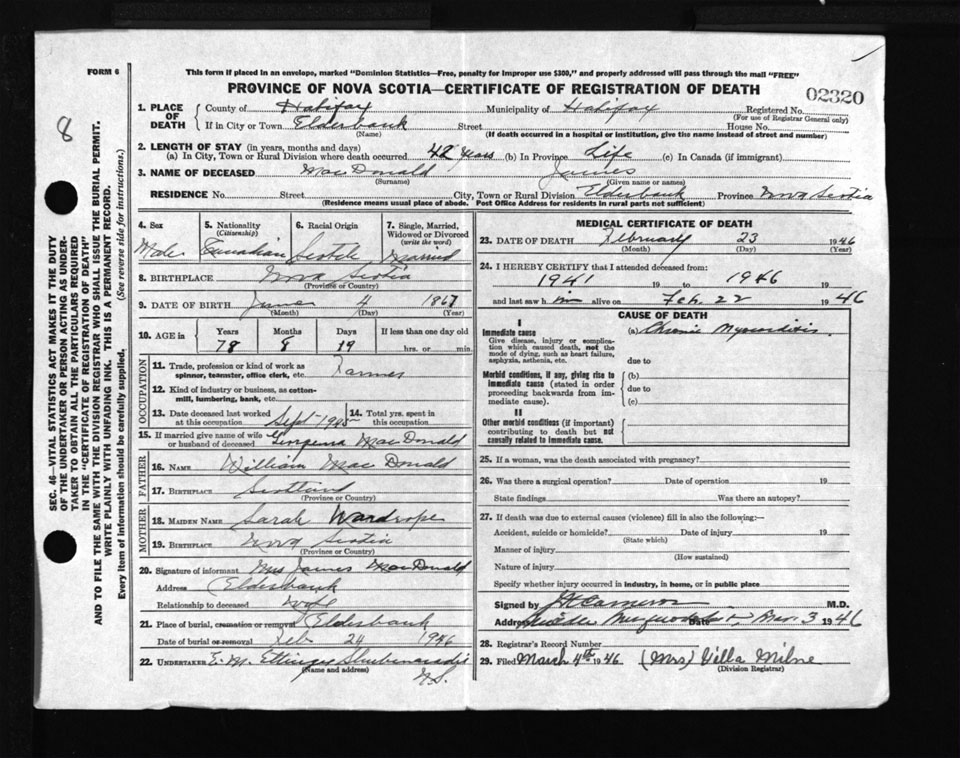 FORM 6
This form if placed in an envelope, marked "Dominion Statistics—Free, penalty for improper use $300," and properly addressed will pass through the mail "FREE"
PROVINCE OF NOVA SCOTIA—CERTIFICATE OF REGISTRATION OF DEATH
02320
8
SEC. 46—VITAL STATISTICS ACT MAKES IT THE DUTY
OF THE UNDERTAKER OR PERSON ACTING AS UNDER-
TAKER TO OBTAIN ALL THE PARTICULARS REQUIRED
IN THE "CERTIFICATE OF REGISTRATION OF DEATH"
AND TO FILE THE SAME WITH THE DIVISION REGISTRAR WHO SHALL ISSUE THE BURIAL PERMIT.
WRITE PLAINLY WITH UNFADING INK. THIS IS A PERMANENT RECORD.
Every item of information should be carefully supplied. (See reverse side for instructions.)
1. PLACE OF DEATH County of Halifax Municipality of Halifax Registered No.
(For use of Registrar General only)
If in City or Town Elderbank Street House No.
(Name) (If death occurred in a hospital or institution, give the name instead of street and number)
2. LENGTH OF STAY (in years, months and days)
(a) In City, Town or Rural Division where death occurred 42 years (b) In Province Life (c) In Canada (if immigrant)
3. NAME OF DECEASED MacDonald James
(Surname) (Given name or names)
RESIDENCE No. Street City, Town or Rural Division Elderbank Province Nova Scotia
(Residence means usual place of abode. Post Office Address for residents in rural parts not sufficient)
4. Sex 5. Nationality (Citizenship) 6. Racial Origin 7. Single, Married, Widowed or Divorced (write the word)
Male Canadian Scotch Married
8. BIRTHPLACE Nova Scotia
(Province or Country)
9. DATE OF BIRTH June 4 1867
(Month) (Day) (Year)
10. AGE in Years Months Days If less than one day old
78 8 19 hrs. or min.
OCCUPATION
11. Trade, profession or kind of work as spinner, teamster, office clerk, etc. Farmer
12. Kind of industry or business, as cotton-mill, lumbering, bank, etc.
13. Date deceased last worked at this occupation Sept 1945 14. Total yrs. spent in this occupation
15. If married give name of wife or husband of deceased Georgenia MacDonald
FATHER
16. NAME William MacDonald
17. BIRTHPLACE Scotland
(Province or Country)
MOTHER
18. MAIDEN NAME Sarah Wardrope
19. BIRTHPLACE Nova Scotia
(Province or Country)
20. Signature of informant Mrs James MacDonald
Address Elderbank
Relationship to deceased wife
21. Place of burial, cremation or removal Elderbank
Date of burial or removal Feb 24 1946
22. UNDERTAKER E. M. Ettinger Shubenacadie
(Name and address) N.S.
MEDICAL CERTIFICATE OF DEATH
23. DATE OF DEATH February 23 1946
(Month) (Day) (Year)
24. I HEREBY CERTIFY that I attended deceased from:
1941 19 to 1946 19
and last saw him alive on Feb. 22 1946
CAUSE OF DEATH
I
Immediate cause (a) Chronic Myocarditis
Give disease, injury or complication which caused death, not the mode of dying, such as heart failure, asphyxia, asthenia, etc.
due to
Morbid conditions, if any, giving rise to immediate cause (stated in order proceeding backwards from immediate cause). (b)
due to
(c)
II
Other morbid conditions (if important) contributing to death but not causally related to immediate cause.
25. If a woman, was the death associated with pregnancy?
26. Was there a surgical operation? Date of operation 19
State findings Was there an autopsy?
27. If death was due to external causes (violence) fill in also the following:—
Accident, suicide or homicide? Date of injury 19
(State which)
Manner of injury
(How sustained)
Nature of injury
Specify whether injury occurred in industry, in home, or in public place
Signed by J H Cameron M.D.
Address Middle Musquodoboit Date Mar. 3 1946
28. Registrar's Record Number
29. Filed March 4th 1946 (Mrs) Villa Milne
(Division Registrar)